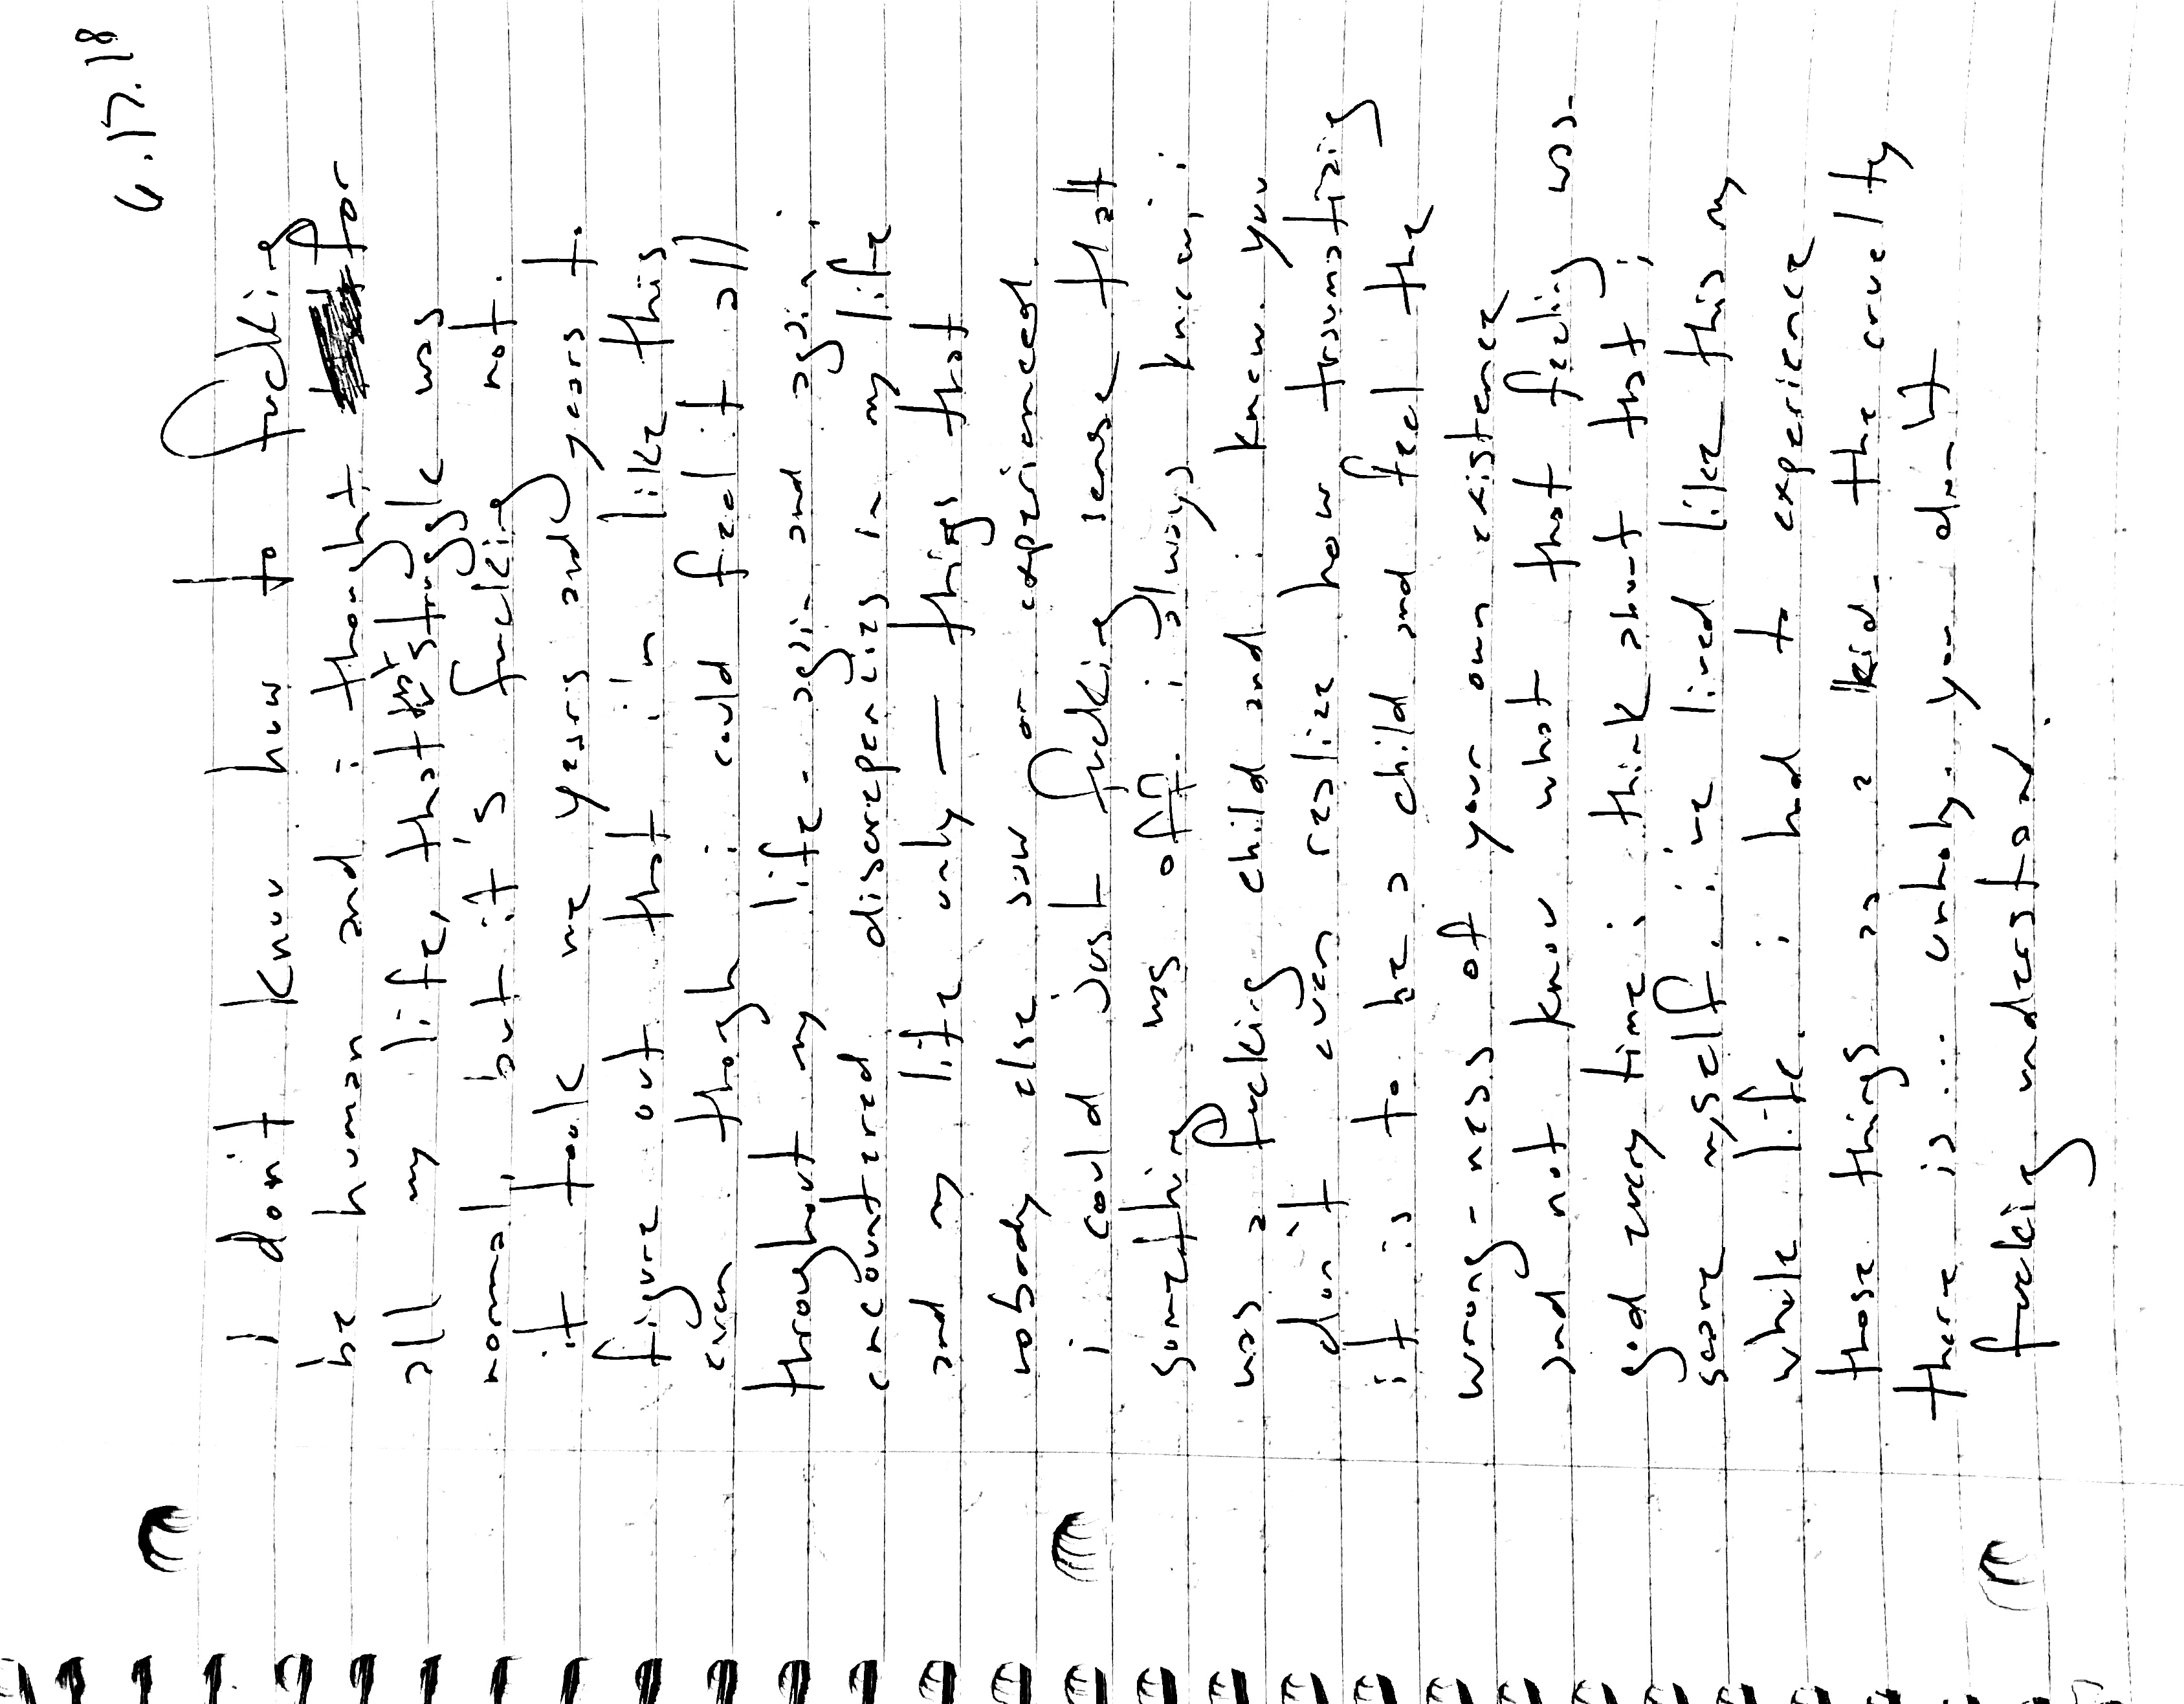 6.17.18
i don't know how to fucking
be human and i thought for
all my life, that that struggle was
normal, but it's fucking not.
it took me years and years to
figure out that i'm like this
even though i could feel it all
throughout my life - again and again i
encountered discrepencies in my life
and my life only — things that
nobody else saw or experienced.
i could just fucking sense that
something was off. i always knew, i
was a fucking child and i knew. you
don't even realize how traumatizing
it is to be a child and feel the
wrong-ness of your own existence
and not know what that feeling was.
god every time i think about that i
scare myself. i've lived like this my
whole life. i had to experience
those things as a kid. the cruelty
there is... unholy. you don't
fucking understand.